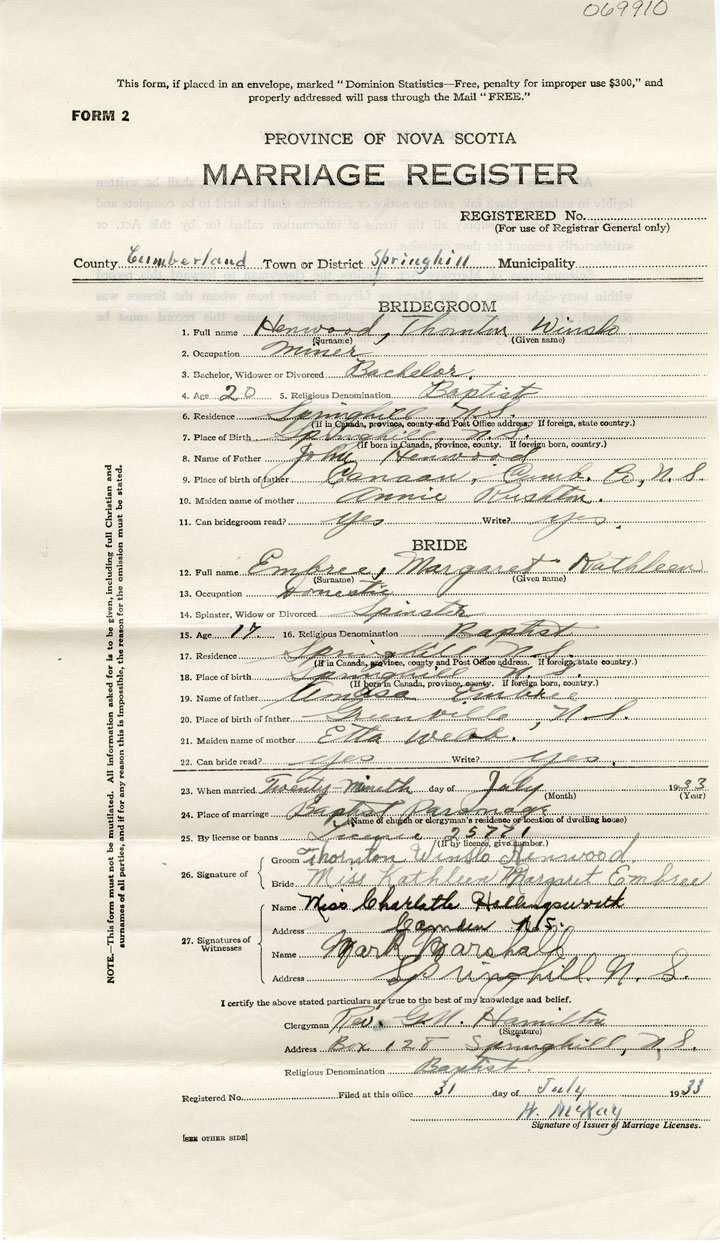 069910
This form, if placed in an envelope, marked "Dominion Statistics—Free, penalty for improper use $300," and
properly addressed will pass through the Mail "FREE."
FORM 2
PROVINCE OF NOVA SCOTIA
MARRIAGE REGISTER
REGISTERED No.
(For use of Registrar General only)
County Cumberland Town or District Springhill Municipality
BRIDEGROOM
1. Full name Henwood, Thornton Winslo
(Surname) (Given name)
2. Occupation Miner
3. Bachelor, Widower or Divorced Bachelor.
4. Age 20 5. Religious Denomination Baptist
6. Residence Springhill, N.S.
(If in Canada, province, county and Post Office address. If foreign, state country.)
7. Place of Birth Springhill, N.S.
(If born in Canada, province, county. If foreign born, country.)
8. Name of Father John Henwood
9. Place of birth of father Canaan, Cumb. Co, N.S.
10. Maiden name of mother Annie Rushton.
11. Can bridegroom read? yes Write? yes.
BRIDE
12. Full name Embree, Margaret Kathleen
(Surname) (Given name)
13. Occupation Domestic
14. Spinster, Widow or Divorced Spinster
15. Age 17. 16. Religious Denomination Baptist
17. Residence Springhill N.S.
(If in Canada, province, county and Post Office address. If foreign, state country.)
18. Place of birth Springhill N.S.
(If born in Canada, province, county. If foreign born, country.)
19. Name of father Amasa Embree
20. Place of birth of father Greenville, N.S.
21. Maiden name of mother Etta Welsh.
22. Can bride read? yes Write? yes.
23. When married Twenty-Nineth day of July 1933
(Month) (Year)
24. Place of marriage Baptist Parsonage
(Name of church or clergyman's residence or location of dwelling house)
25. By license or banns License 25771
(If by licence, give number.)
26. Signature of Groom Thornton Winslo Henwood
Bride Miss Kathleen Margaret Embree
27. Signatures of Witnesses
Name Miss Charlotte Hollingsworth
Address Camden N.S.
Name Mark Marshall
Address Springhill N.S.
I certify the above stated particulars are true to the best of my knowledge and belief.
Clergyman Rev. G.W. Hamilton
(Signature)
Address Box 128 Springhill, N.S.
Religious Denomination Baptist.
Registered No. Filed at this office 31 day of July 1933
H. McKay
Signature of Issuer of Marriage Licenses.
[SEE OTHER SIDE]
NOTE.—This form must not be mutilated. All information asked for is to be given, including full Christian and
surnames of all parties, and if for any reason this is impossible, the reason for the omission must be stated.